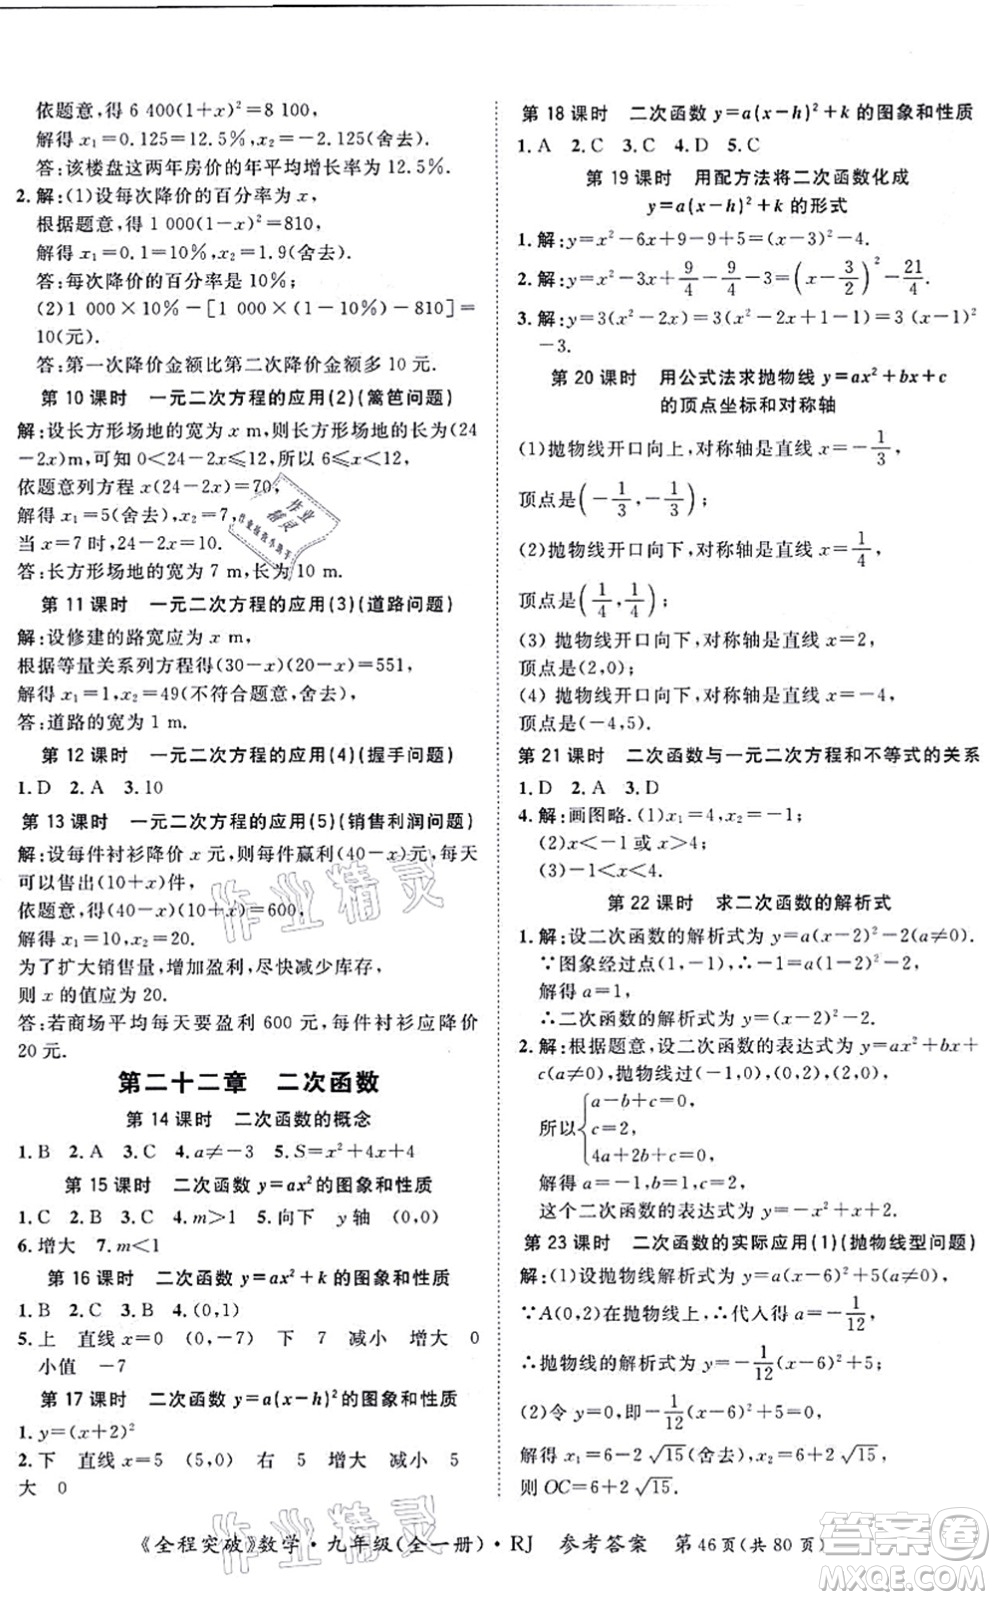 依题意,得6 400(1+x)²=8 100,
解得x₁=0.125=12.5%,x₂=-2.125(舍去).
答:该楼盘这两年房价的年平均增长率为12.5%.
2.解:(1)设每次降价的百分率为x,
根据题意,得1 000(1-x)²=810,
解得x₁=0.1=10%,x₂=1.9(舍去);
答:每次降价的百分率是10%;
(2)1 000×10%-[1 000(1-10%)-810]=
10(元).
答:第一次降价金额比第二次降价金额多10元.
第10课时 一元二次方程的应用(2)(篱笆问题)
解:设长方形场地的宽为x m,则长方形场地的长为(24
-2x)m,可知0<24-2x≤12,所以6≤x<12,
依题意列方程x(24-2x)=70,
解得x₁=5(舍去),x₂=7,
当x=7时,24-2x=10.
答:长方形场地的宽为7 m,长为10 m.
第11课时 一元二次方程的应用(3)(道路问题)
解:设修建的路宽应为x m,
根据等量关系列方程得(30-x)(20-x)=551,
解得x₁=1,x₂=49(不符合题意,舍去),
答:道路的宽为1 m.
第12课时 一元二次方程的应用(4)(握手问题)
1.D 2.A 3.10
第13课时 一元二次方程的应用(5)(销售利润问题)
解:设每件衬衫降价x元,则每件赢利(40-x)元,每天
可以售出(10+x)件,
依题意,得(40-x)(10+x)=600,
解得x₁=10,x₂=20.
为了扩大销售量,增加盈利,尽快减少库存,
则x的值应为20.
答:若商场平均每天要盈利600元,每件衬衫应降价
20元.
第二十二章 二次函数
第14课时 二次函数的概念
1.B 2.A 3.C 4.a≠-3 5.S=x²+4x+4
第15课时 二次函数y=ax²的图象和性质
1.C 2.B 3.C 4.m>1 5.向下 y轴 (0,0)
6.增大 7.m<1
第16课时 二次函数y=ax²+k的图象和性质
1.B 2.C 3.B 4.(0,1)
5.上 直线x=0 (0,-7) 下 7 减小 增大 0
小值 -7
第17课时 二次函数y=a(x-h)²的图象和性质
1.y=(x+2)²
2.下 直线x=5 (5,0) 右 5 增大 减小 5
大 0
第18课时 二次函数y=a(x-h)²+k的图象和性质
1.A 2.C 3.C 4.D 5.C
第19课时 用配方法将二次函数化成
y=a(x-h)²+k的形式
1.解:y=x²-6x+9-9+5=(x-3)²-4.
2.解:y=x²-3x+9/4-9/4-3=(x-3/2)²-21/4.
3.解:y=3(x²-2x)=3(x²-2x+1-1)=3(x-1)²
-3.
第20课时 用公式法求抛物线y=ax²+bx+c
的顶点坐标和对称轴
(1)抛物线开口向上,对称轴是直线x=-1/3,
顶点是(-1/3,-1/3);
(2)抛物线开口向下,对称轴是直线x=1/4,
顶点是(1/4,1/4);
(3)抛物线开口向下,对称轴是直线x=2,
顶点是(2,0);
(4)抛物线开口向下,对称轴是直线x=-4,
顶点是(-4,5).
第21课时 二次函数与一元二次方程和不等式的关系
1.D 2.A 3.D
4.解:画图略.(1)x₁=4,x₂=-1;
(2)x<-1或x>4;
(3)-1<x<4.
第22课时 求二次函数的解析式
1.解:设二次函数的解析式为y=a(x-2)²-2(a≠0).
∵图象经过点(1,-1),∴-1=a(1-2)²-2,
解得a=1,
∴二次函数的解析式为y=(x-2)²-2.
2.解:根据题意,设二次函数的表达式为y=ax²+bx+
c(a≠0),抛物线过(-1,0),(0,2),(2,0),
所以{a-b+c=0,
c=2,
4a+2b+c=0,
解得a=-1,b=1,c=2,
这个二次函数的表达式为y=-x²+x+2.
第23课时 二次函数的实际应用(1)(抛物线型问题)
解:(1)设抛物线的解析式为y=a(x-6)²+5(a≠0),
∵A(0,2)在抛物线上,∴代人得a=-1/12,
∴抛物线的解析式为y=-1/12(x-6)²+5;
(2)令y=0,即-1/12(x-6)²+5=0,
解得x₁=6-2√15(舍去),x₂=6+2√15,
则OC=6+2√15.
《全程突破》数学·九年级(全一册)·RJ 参考答案 第46页(共80页)
作业精灵
作业精灵
作业精灵
答案圈
MXQE.COM